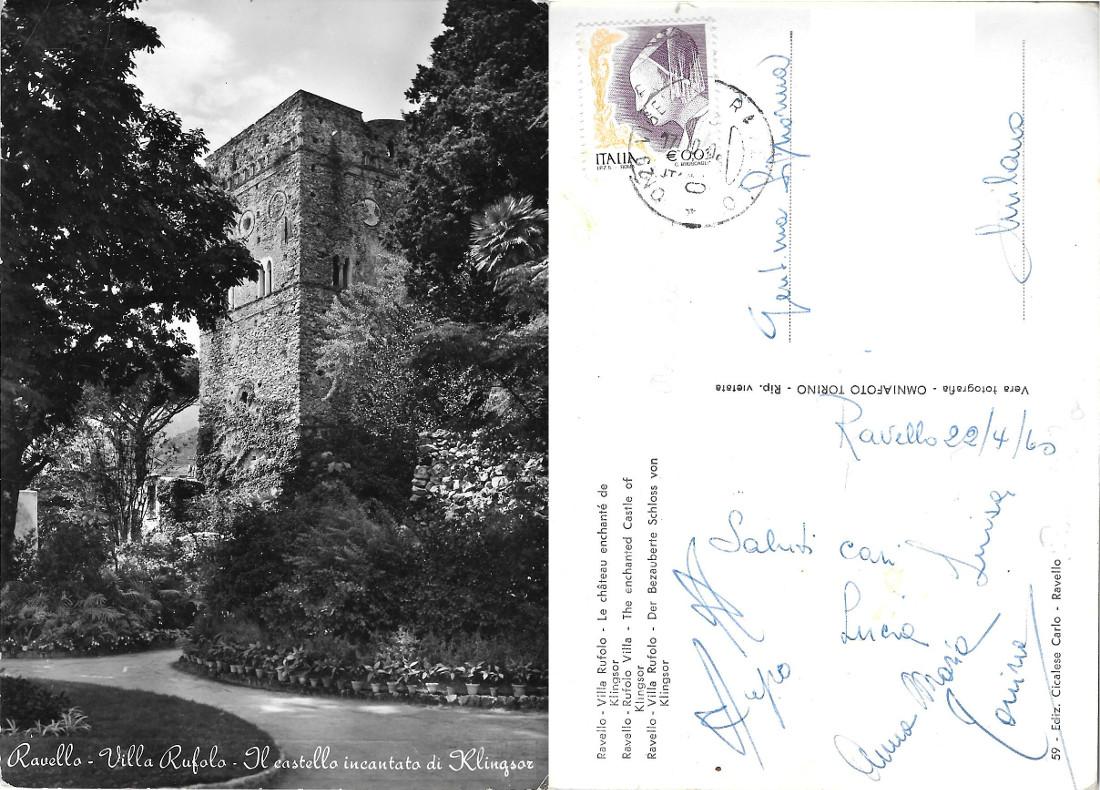 Ravello - Villa Rufolo - Il castello incantato di Klingsor
ITALIA
Gentma Signorina
Milano
Vera fotografia - OMNIAFOTO TORINO - Rip. vietata
Ravello 22/4/60
Saluti cari
Lucia
Luisa
Anna Maria
Ravello - Villa Rufolo - Le château enchanté de
Klingsor
Ravello - Rufolo Villa - The enchanted Castle of
Klingsor
Ravello - Villa Rufolo - Der Bezauberte Schloss von
Klingsor
59 - Ediz. Cicalese Carlo - Ravello